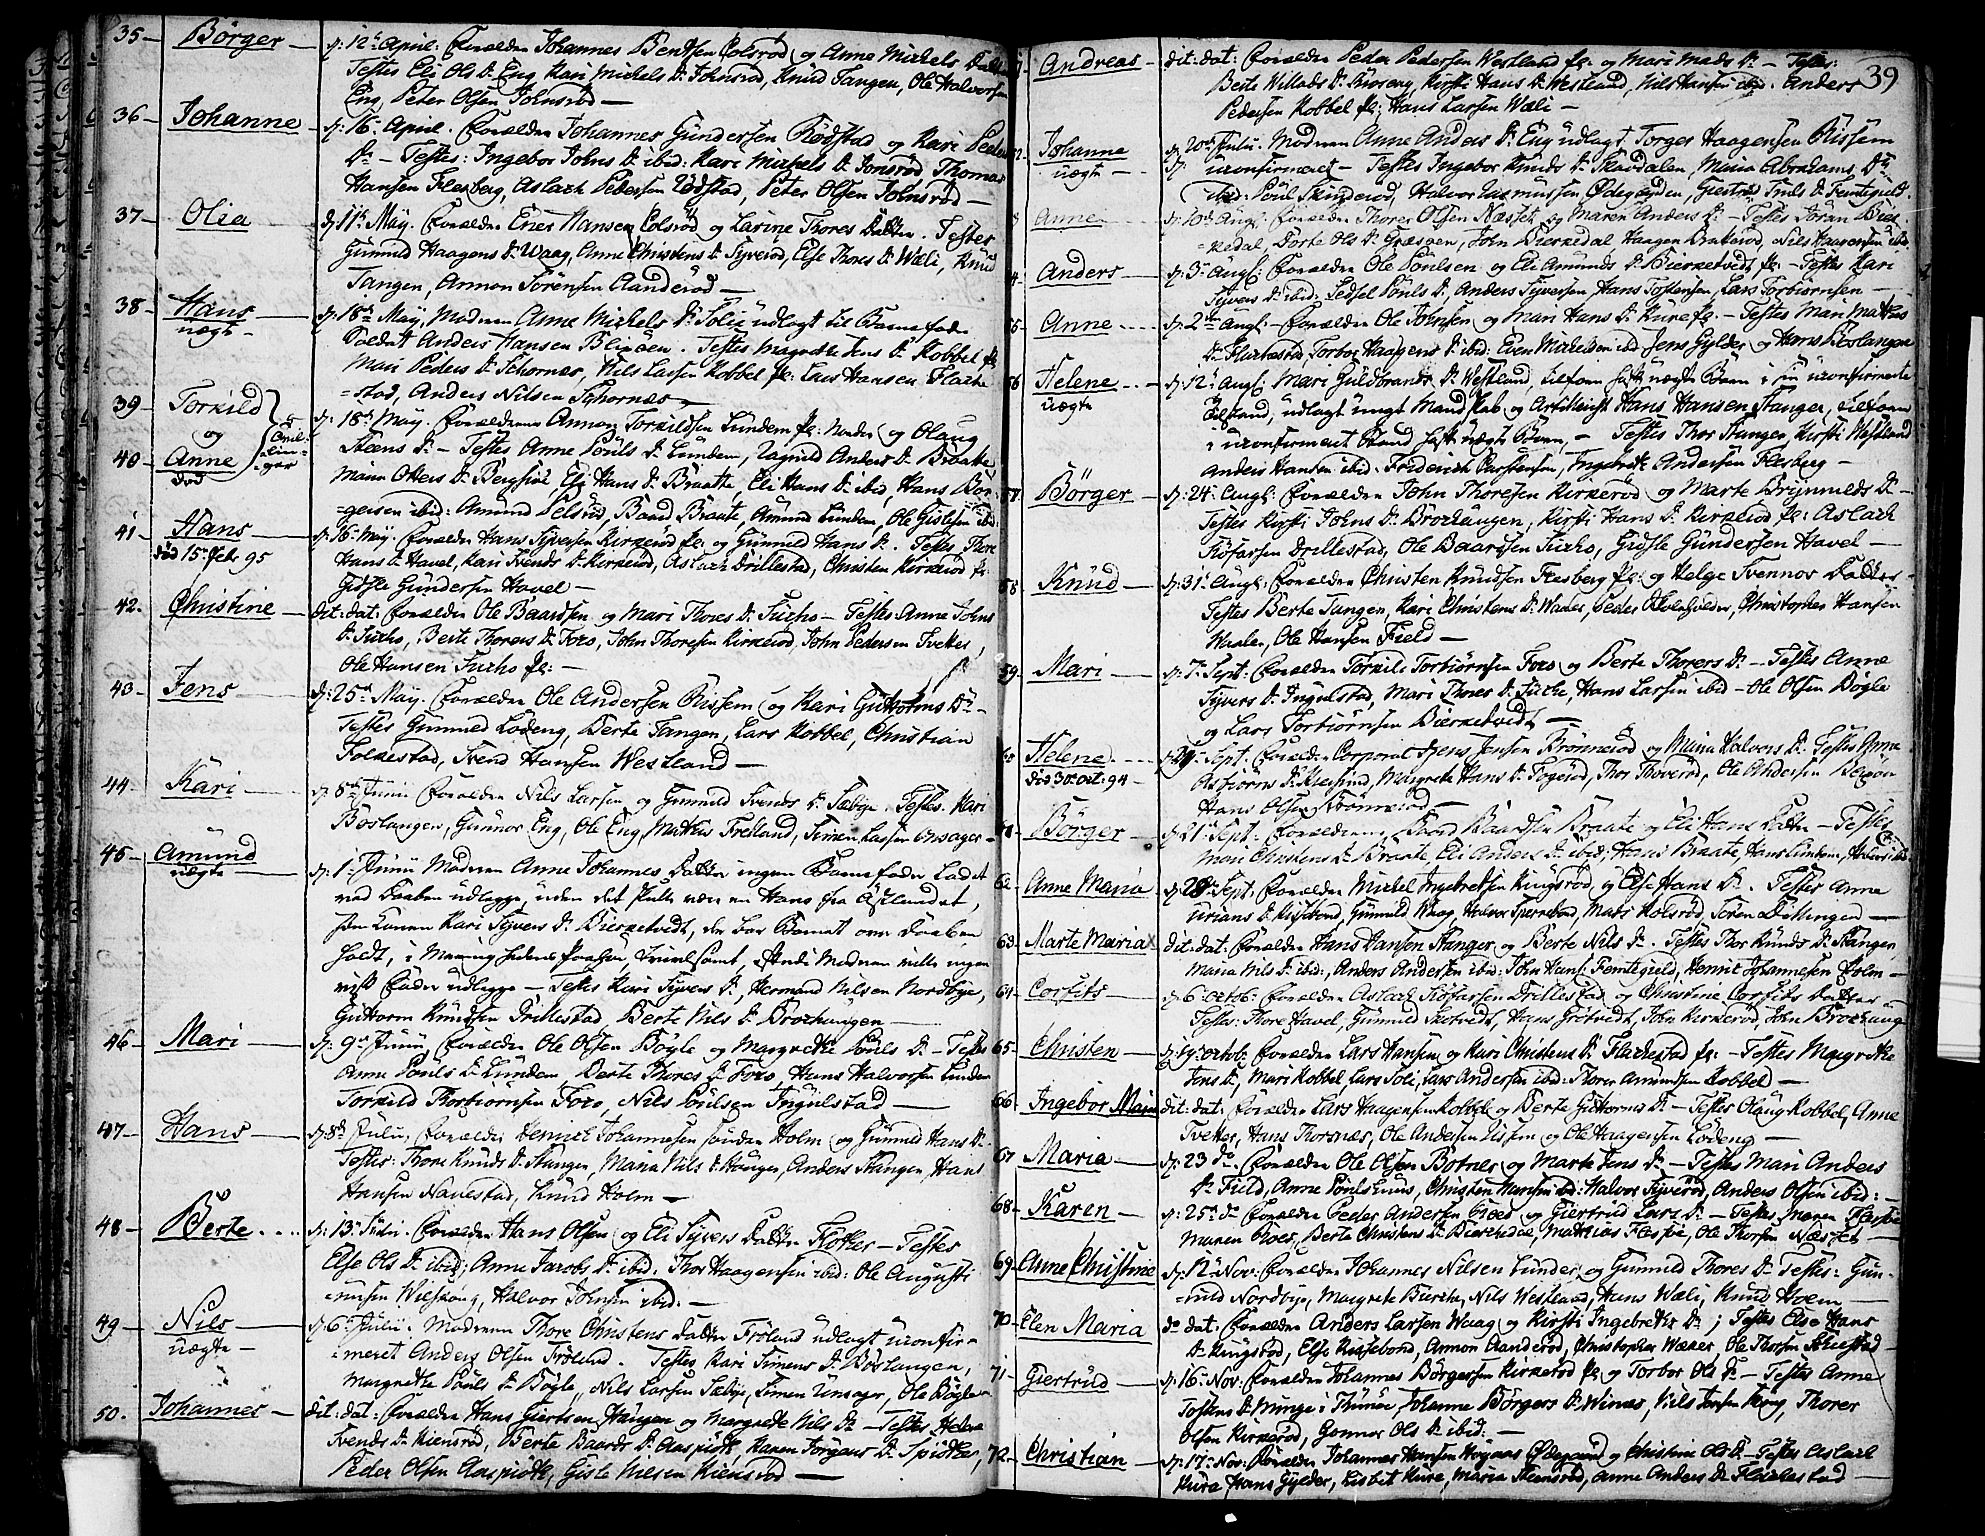 35 — Börger — d: 12te April: Forældre Johannes Bentsen Colsröd og Anne Michels Datter
Testes Eli Ols Dr Eng, Kari Michels Dr Johnsröd, Knud Tangen, Ole Halvorsen
Eng, Peter Olsen Johnsröd —
36 — Johanne — d: 16 April: Forældre Johannes Gundersen Rödstad og Kari Peders
Dr — Testes: Ingebor Johns Dr ibid: Kari Michels Dr Jonsröd Thomas
Hansen Flesberg, Aslach Pedersen Rödstad, Peter Olsen Johnsröd —
37 — Olia — d: 11te May. Forældre Ener Hansen Colsröd og Larine Thores Datter. Testes
Gunnild Haagens Dr Waag, Anne Christens Dr Syveröd, Else Thores Dr Wæli, Knud
Tangen, Annon Törensen Aanderöd —
38 — Hans — d: 18de May, Moderen Anne Michels Dr Solie udlagt til Barnefader
uægte — Soldat Anders Hansen Blixöen. Testes Magrethe Jens Dr Kobbel
Mari Peders Dr Schornæs, Nils Larsen Kobbel, Lars Hansen Flache
=stad, Anders Nilsen Schornæs —
39 — Torkild
og
40 — Anne
död
d: 18de May. Forældrene Annon Torkildsen Lundem og Olaug
Steens Dr — Testes Anne Pouls Dr Lundem, Ragnild Anders Dr Braate,
Maria Otters Dr Berg, Eli Hans Dr Braate, Eli Hans Dr ibid, Hans Bör=
=gersen ibid: Amund Pelsröd, Baard Braate, Amund Lundem, Ole Gislesen ibid:
41 — Hans — d: 16 May: Forældre Hans Syversen Kirkeröd og Gunnild Hans Dr. Testes Thore
död 15de Febr 95 Hans Dr Havel, Kari Svends Dr Kirkeröd, Aslach Drillestad, Christen Kirkeröd
Gidsle Gundersen Havel —
42. Christine — dit: dat: Forældre Ole Baardsen og Mari Thores Dr Furho — Testes Anne Johns
Dr Furho, Berte Thores Dr Foro, John Thoresen Kirkeröd, John Pedersen Tvetter,
Ole Hansen Furho
43 — Jens — d: 25de May. Forældre Ole Andersen Rissem og Kari Guttorms Dr —
Testes Gunnild Lodeng, Berte Tangen, Lars Kobbel, Christian
Folkestad, Svend Hansen Westland —
44 — Kari — d: 8de Junii Forældre Nils Larsen og Gunnild Svends Dr Sæbye. Testes. Kari
Boslangen, Gunnor Eng, Ole Eng, Mathis Fretland, Simen Larsen Onsager —
45 — Amund — d: 1te Junii Moderen Anne Johannes Datter ingen Barnefader Lodet
uægte ved Daaben udlegge, uden det skulle være en Hans fra Östlandet,
Kari Syvers Dr Bierketvedt, der bar Barnet over Daaben
holdt, Moderen wille ingen
vist Fader udlegge — Testes Kari Syvers Dr, Hermand Nilsen Nordbye,
Guttorm Knudsen Drillestad, Berte Nils Dr Brochaugen —
46 — Mari — d: 9de Junii Forældre Ole Olsen Bögle og Margrethe Pouls Dr — Testes
Anne Pouls Dr Lundem Berte Thores Dr Foro, Hans Halvorsen Lundem
Torkild Thorbiörnsen Foro, Nils Poulsen Ingulstad —
47 — Hans — d: 8de Julii, Forældre Henrich Johannesen Holm og Gunnild Hans Dr —
Testes: Thore Knuds Dr Stanger, Maria Nils Dr Stanger, Anders Stanger, Hans
Hansen Navestad, Knud Holm —
48 — Berte — d: 13de Julii — Forældre Hans Olsen og Eli Syvers Datter Flother — Testes
Else Ols Dr ibid: Anne Jacobs Dr ibid. Thor Haagensen ibid: Ole Augusti
=nusen Wilskoug, Halvor Johnsen ibid: —
49 — Nils — d: 6te Julii. Moderen Thore Christens Datter Frölund udlagt uconfir=
uægte — =meret Anders Olsen Frölund. Testes Kari Simens Dr Börlangen,
Margrethe Pouls Dr Bögle, Nils Larsen Sæbye, Simen Unsager, Ole Bögle —
50. Johannes — dit: dat: Forældre Hans Giertsen Haugen og Margrethe Nils Dr — Testes Helvor
Svends Dr Kiensröd, Berte Baards Dr Aaspidth, Karen Torgers Dr Spidther,
Peder Olsen Aaspidth, Gisle Nilsen Kiensröd —
39
Andreas — dit: dat: Forældre Peder Pedersen Westland og Mari Mads Dr — Testes:
Berte Willads Dr, Kirsti Hans Dr Westland, Nils Hansen ibid. Anders
Pedersen Kobbel, Hans Larsen Wæli —
Johanne d: 20de Julii. Moderen Anne Anders Dr Eng udlagt Torger Haagensen Rissem
uægte — uconfirmeret — Testes Ingebor Knuds Dr Skaudalen, Maria Abrahams Dr
ibid: Poul Skinderöd, Halvor Rasmussen Ödegaarden, Giertrud Truls Dr Femtegield.
Anne — d: 10de Aug: Forældre Thorer Olsen Næstet og Maren Anders Dr — Testes Joran Bier
=kedal, Dorte Ols Dr Græsgen, John Bierkedal Haagen Brakeröd, Nils Haagensen ibid
Anders — d: 3de Aug: Forældre Ole Poulsen og Eli Amunds Dr Bierketvedt — Testes Kari
Syvers Dr ibid: Sedsel Pouls Dr, Anders Syversen, Hans Tostensen, Lars Torbiörnsen —
55 Anne — d: 2de Aug: — Forældre Ole Johnsen og Mari Hans Dr Kure — Testes Mari Mathis
Dr Flachestad, Torbor Haagens Dr ibid. Even Michelsen ibid Jens Gylder og Hans Boslangen
56 Helene — d: 12te Aug: Mari Guldbrands Dr Westland, tilforn hafft uægte Barn i sin uconfirmerte
uægte Tilstand, udlagt ungt Mandskab og Artillerist Hans Hansen Stanger, tilforn
i uconfirmeret Stand hafft uægte Barn, — Testes Thor Stanger, Kirsti Westland
Anders Hansen ibid: Friderich Carstensen, Ingebreth Andersen Flesberg —
57 Börger — d: 24de Aug: Forældre John Thoresen Kirkeröd og Marte Brynnilds Dr —
Testes Kirsti Johns Dr Brochaugen, Kirsti Hans Dr Kirkeröd Aslach
Tiöfarsen Drillestad, Ole Baardsen Furho, Gidsle Gundersen Havel —
58 Knud — d: 31te Aug: Forældre Christen Knudsen Flesberg og Helge Svennos Datter —
Testes Berte Tangen, Kari Christens Dr Wader, Peder, Christopher Hansen
Waaler, Ole Hansen Field —
59 Mari — d: 7de Sept: Forældre Torkild Torbiörnsen Foro og Berte Thorers Dr — Testes Anne
Syvers Dr Ingulstad, Mari Thores Dr Furho, Hans Larsen ibid — Ole Olsen Bögle
og Lars Torbiörnsen Bierketvedt —
60 Helene — Sept. Forældre Corporal Jens Jensen Brönneröd og Maria Halvors Dr. Testes Anne
död 30te Oct: 94 — Asbiörns Dr, Margrete Hans Dr Togeröd, Thor Thoveröd, Ole Andersen Bergön
Hans Olsen Brönneröd —
61 Börger — d: 21de Sept: Forældrene Baard Baardsen Braate og Eli Hans Datter — Testes
Mari Christens Dr Braate, Eli Anders Dr ibid; Hans Braate, Hans Lundem, ibid
62 Anne Maria d: 28de Sept. Forældre Michel Ingebretsen Kingsröd, og Else Hans Dr. Testes Anne
Urians Dr Kissebond, Gunnild Waag, Halvor Sperrebod, Mari Kolsröd, Sören Dillingen —
63 — Marte Maria dit: dat: Forældre Hans Hansen Stanger, og Berte Nils Dr. Testes Thor Knuds Dr Stanger,
Maria Nils Dr ibid:, Anders Andersen ibid: John Hans: Femtegield, Henric Johannesen Holm —
64 — Corfits — d: 6te Octob: Forældre Aslach Tiöfarsen Drillestad og Christine Corfits Datter —
Testes: Thore Havel, Gunnild Skotvedt, Hans Grötvedt, John Kirkeröd, John Brochaug
65 — Christen — d: 19de Octob: Forældre Lars Hansen og Kari Christens Dr Flachestad — Testes Magrethe
Jens Dr, Mari Kobbel, Lars Soli, Lars Andersen ibid: Thorer Amundsen Kobbel —
66 Ingebor Maria dit: dat: Forældre Lars Haagensen Kobbel og Berte Guttorms Dr — Testes Olaug Kobbel, Anne
Tvetter, Hans Thorsnæs, Ole Andersen Rissem og Ole Haagensen Lodeng —
67 Maria — d: 23 do Forældre Ole Olsen Botner og Marte Jens Dr — Testes Mari Anders
Dr Field, Anne Pouls, Christen Hansen ibid: Halvor Syveröd, Anders Olsen ibid: —
68 — Karen — d: 25de do Forældre Peder Andersen Groes og Giertrud Lars Dr — Testes Maren Flessie
Maren Groes, Berte Christens Dr Bierkedal, Mathias Flessie, Ole Thorsen Næstet —
69 Anne Christine d: 12te Nov: Forældre Johannes Nilsen Lunder, og Gunnild Thores Dr Testes: Gun=
=nild Nordbye, Margrete Burche, Nils Westland, Hans Wæli, Knud Holm —
70 — Elen Maria do dat: Forældre Anders Larsen Waag og Kirsti Ingebreths Dr; Testes Else Hans
Dr Kingsröd, Else Kissebond, Armon Aanderöd, Christopher Wæer, Ole Thorsen
71 — Giertrud — d: 16de Nov: Forældre Johannes Börgersen Kirkeröd og Torbor Ols Dr — Testes Anne
Tostens Dr Minge i Thunöe, Johanne Börgers Dr Winæs, Nils Jensen, Thorer
Olsen Kirkeröd, Gonnor Ols Dr ibid: —
72 — Christian — d: 17de Nov: Forældre Johannes Hansen Ödegaard og Christine Ols Dr — Testes Aslach
Kure, Hans Gylder, Lisbet Kure, Maria Kiensröd, Anne Anders Dr Flachestad —